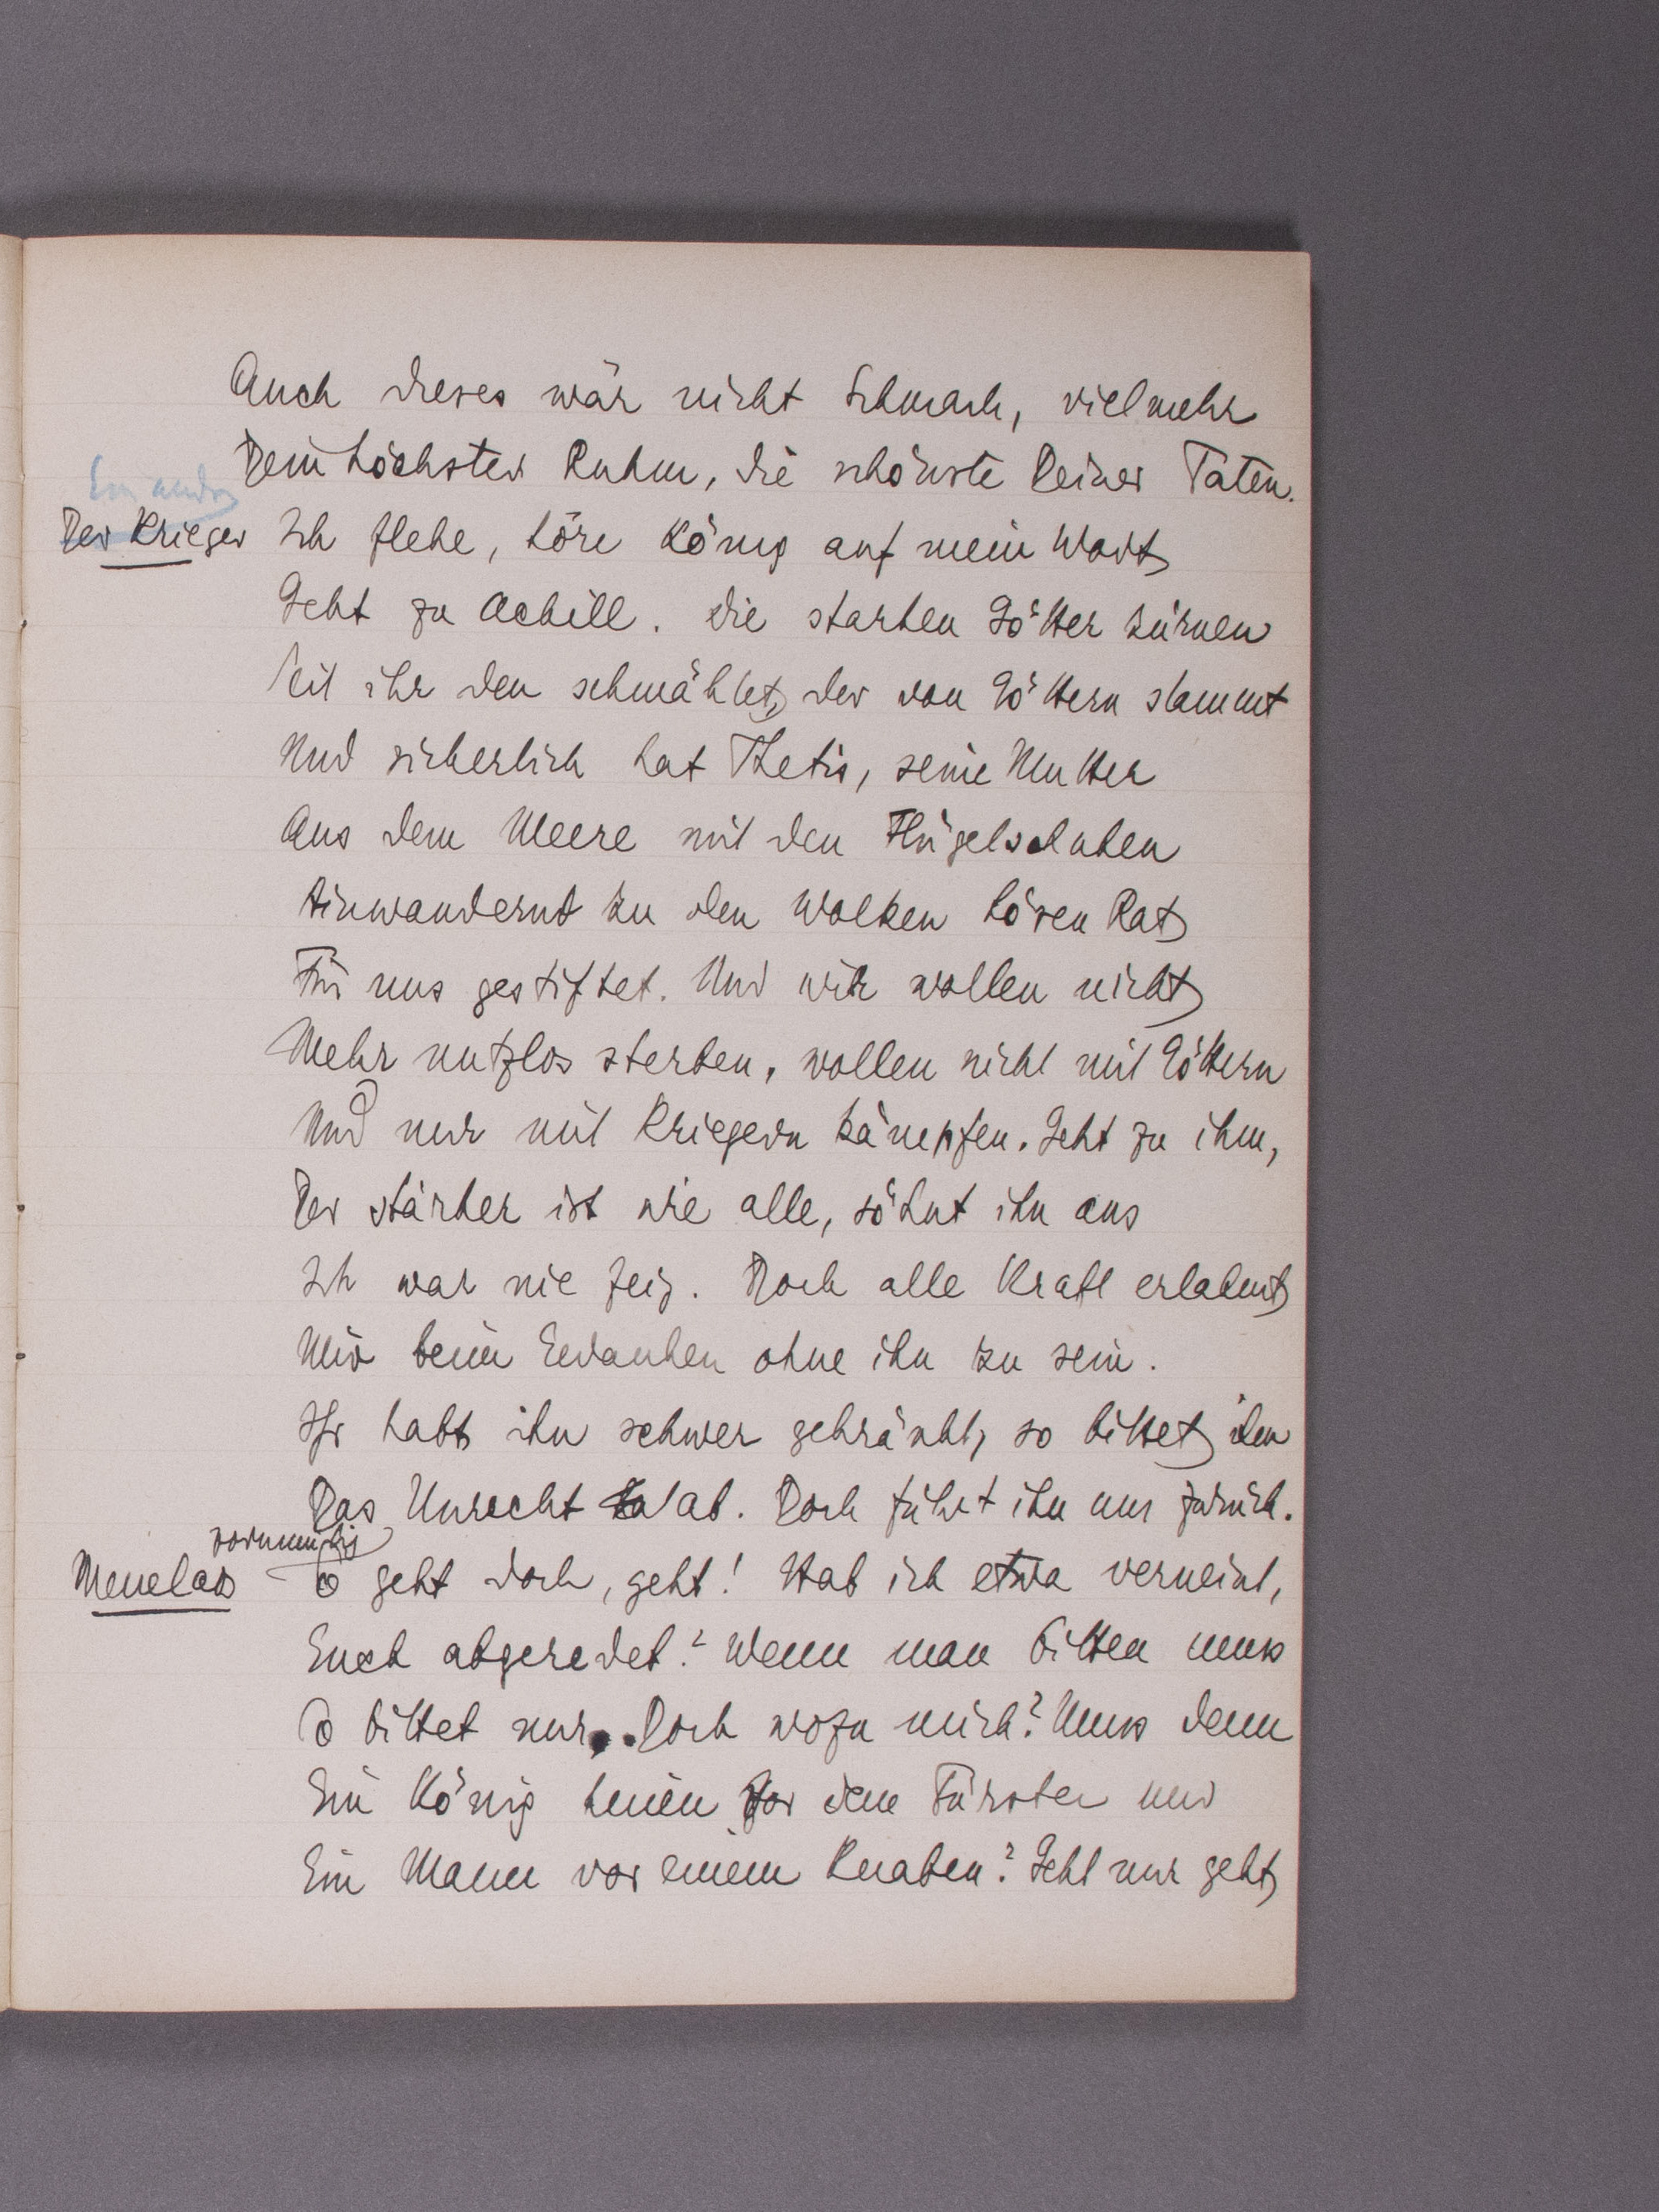 Auch dieses wär nicht Schmach, vielmehr
Dein höchster Ruhm, die schönste Deiner Taten.
Ein andrer
Der Krieger Ich flehe, höre König auf mein Wort
Geht zu Achill. Die starken Götter zürnen
Seit ihr den schmähtet, der von Göttern stammt
Und sicherlich hat Thetis, seine Mutter
Aus dem Meere mit den Flügelschuhen
Hinwandernd zu den Wolken bösen Rat
Für uns gestiftet. Und wir wollen nicht
Mehr nutzlos sterben, wollen nicht mit Göttern
Und nur mit Kriegern kämpfen. Geht zu ihm,
Der stärker ist wie alle, söhnt ihn aus
Ich war nie feig. Doch alle Kraft erlahmt
Mir beim Gedanken ohne ihn zu sein.
Ihr habt ihn schwer gekränkt, so bittet ihm
Das Unrecht ab. Doch führt ihn uns zurück.
vornunftig
Menelaos O geht doch, geht! Hab ich etwa verneint,
Euch abgeredet? Wenn man bitten muss
O bittet nur. Doch wozu mich? Muss denn
Ein König knien vor dem Fürsten und
Ein Mann vor einem Knaben? Geht nur geht